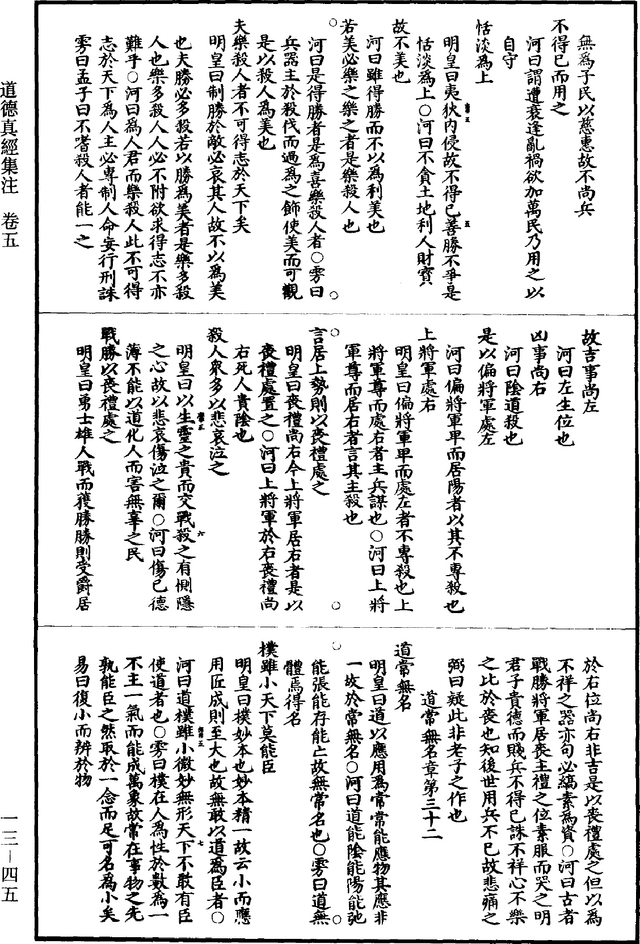 無爲子民以慈惠故不尚兵
不得已而用之
河曰謂遭衰逢亂禍欲加萬民乃用之以
自守
恬淡爲上
明皇曰夷狄內侵故不得已善勝不爭是
恬淡爲上○河曰不貪土地利人財寶
故不美也
河曰雖得勝而不以爲利美也
若美必樂之樂之者是樂殺人也
河曰是得勝者是爲喜樂殺人者○雱曰
兵器主於殺伐而過爲之飾使美而可觀
是以殺人爲美也
夫樂殺人者不可得志於天下矣
明皇曰制勝於敵必哀其人故不以爲美
也夫勝必多殺若以勝爲美者是樂多殺
人也樂多殺人人必不附欲求得志不亦
難乎○河曰爲人君而樂殺人此不可得
志於天下爲人主必專制人命妄行刑誅
雱曰孟子曰不嗜殺人者能一之
故吉事尚左
河曰左生位也
凶事尚右
河曰陰道殺也
是以偏將軍處左
河曰偏將軍卑而居陽者以其不專殺也
上將軍處右
明皇曰偏將軍卑而處左者不專殺也上
將軍尊而處右者主兵謀也○河曰上將
軍尊而居右者言其主殺也
言居上勢則以喪禮處之
明皇曰喪禮尚右今上將軍居右者是以
喪禮處置之○河曰上將軍於右喪禮尚
右死人貴陰也
殺人衆多以悲哀泣之
明皇曰以生靈之貴而交戰殺之有惻隱
之心故以悲哀傷泣之爾○河曰傷已德
薄不能以道化人而害無辜之民
戰勝以喪禮處之
明皇曰勇士雄人戰而獲勝勝則受爵居
於右位尚右非吉是以喪禮處之但以爲
不祥之器亦句必縞素爲資○河曰古者
戰勝將軍居喪主禮之位素服而哭之明
君子貴德而賤兵不得已誅不祥心不樂
之比於喪也知後世用兵不已故悲痛之
弼曰疑此非老子之作也
道常無名章第三十二
道常無名
明皇曰道以應用爲常常能應物其應非
一故於常無名○河曰道能陰能陽能弛
能張能存能亡故無常名也○雱曰道無
體焉得名
樸雖小天下莫能臣
明皇曰樸妙本也妙本精一故云小而應
用匠成則至大也故無敢以道爲臣者○
河曰道樸雖小微妙無形天下不敢有臣
使道者也○雱曰樸在人爲性於數爲一
不主一氣而能成萬象故常在事物之先
孰能臣之然取於一念而足可名爲小矣
易曰復小而辨於物
道德真經集注 卷五
一三－四五